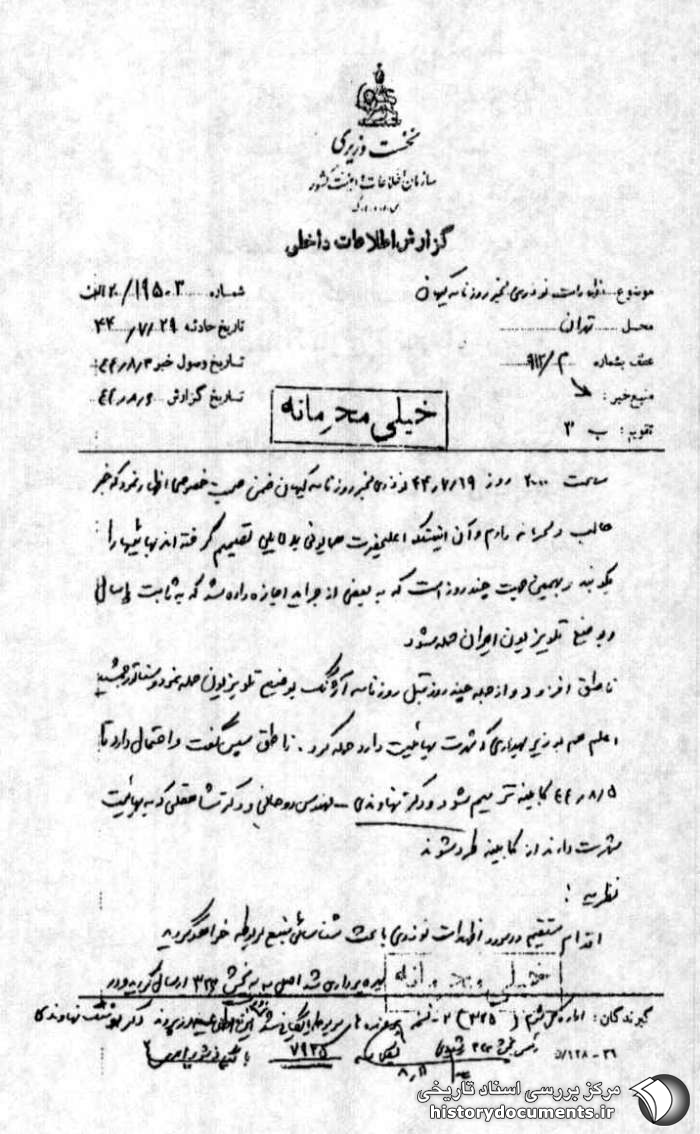 نخست وزیری
سازمان اطلاعات و امنیت کشور
گزارش اطلاعات داخلی
موضوع اظهارات نوذری مخبر روزنامه کیهان
شماره ۱۹۵۰۳/۲۰ الف
محل تهران
تاریخ حادثه ۴۴/۷/۲۹
عطف بشماره ۹۱۲/۳
تاریخ وصول خبر ۴۴/۸/۳
منبع خبر:
تاریخ گزارش ۴۴/۸/۶
تقویم: ب ۳
خیلی محرمانه
ساعت ۲۰۰۰ روز ۴۴/۷/۱۹ نوذری مخبر روزنامه کیهان ضمن صحبت خصوصی اظهار نمود که خبر
جالب و محرمانه دارم و آن اینستکه اعلیحضرت همایونی بدلایلی تصمیم گرفته اند بهائیها را
بکوبند و بهمین جهت چند روز است که به بعضی از جراید اجازه داده شد که به ثابت پاسال
و بوضع تلویزیون ایران حمله شود
ناطق افزود و از جمله چند روز قبل روزنامه آژنگ بوضع تلویزیون حمله نمود و سناتور جمشید
اعلم هم به وزیر بهداری که شهرت بهائیت دارد حمله کرد. ناطق سپس گفت و احتمال دارد تا
۴۴/۸/۵ کابینه ترمیم شود و دکتر نهاوندی - مهندس روحانی و دکتر شاهقلی که به بهائیت
شهرت دارند از کابینه طرد شوند
نظریه:
اقدام مستقیم در مورد اظهارات نوذری باعث شناسائی منبع مربوطه خواهد گردید
خیلی محرمانه
بهره برداری شد اصل به بخش ۳۲۶ ارسال گردید
گیرندگان: اداره کل سوم (۳۲۵) ۲ نسخه
۷۹۲۵
مرکز بررسی اسناد تاریخی
historydocuments.ir